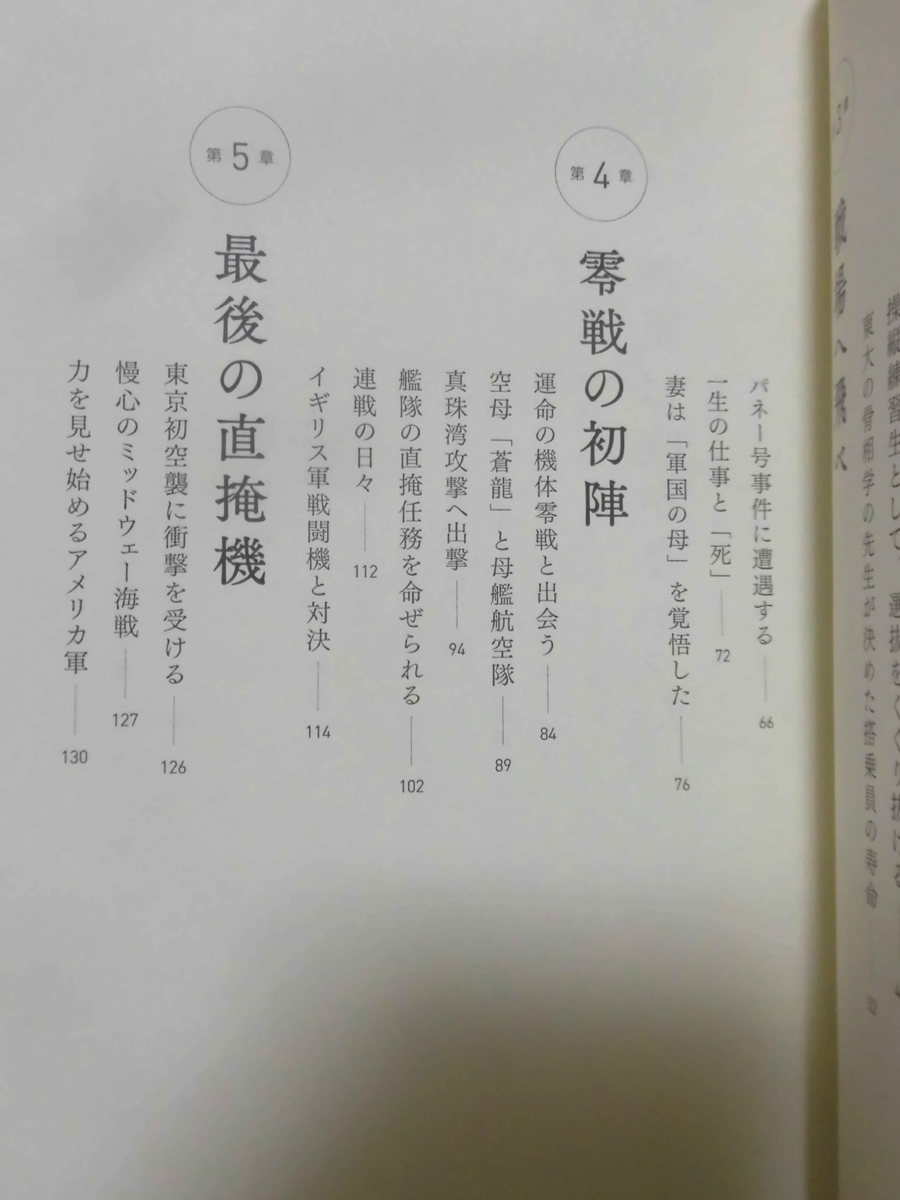 第3章
戦場へ飛ぶ
東大の骨相学の先生が決めた搭乗員の寿命
パネー号事件に遭遇する 66
一生の仕事と「死」 72
妻は「軍国の母」を覚悟した 76
第4章
零戦の初陣
運命の機体零戦と出会う 84
空母「蒼龍」と母艦航空隊 89
真珠湾攻撃へ出撃 94
艦隊の直掩任務を命ぜられる 102
連戦の日々 112
イギリス軍戦闘機と対決 114
第5章
最後の直掩機
東京初空襲に衝撃を受ける 126
慢心のミッドウェー海戦 127
力を見せ始めるアメリカ軍 130